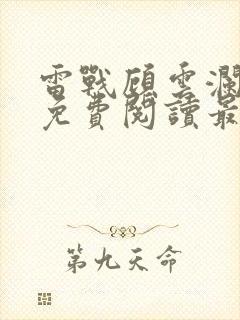 雷戰顧雲瀾
免費閱讀最
第九天命